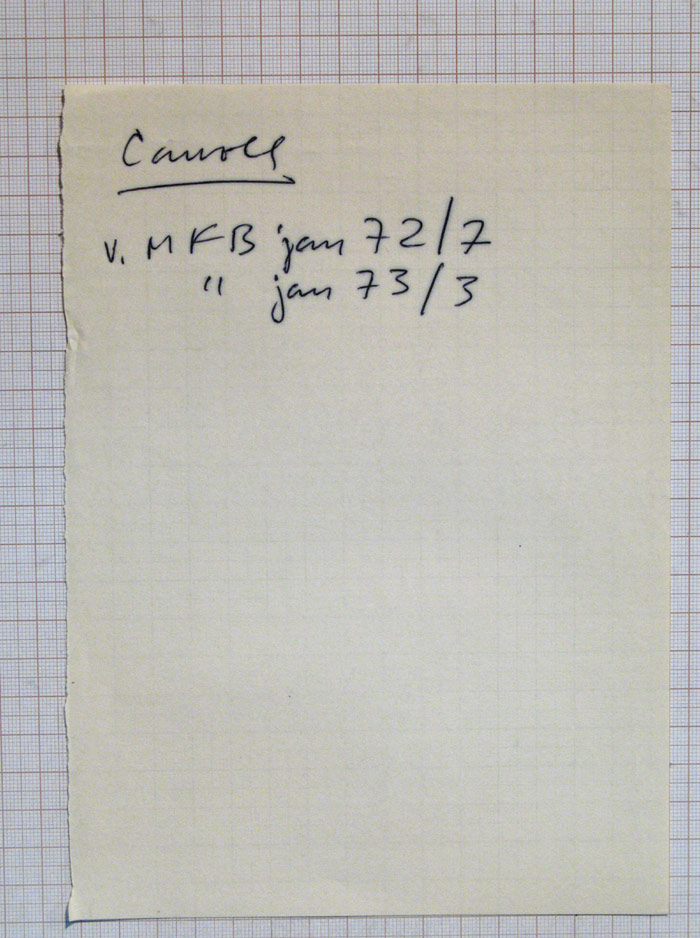 Carroll
v. MFB jan 72/7
" jan 73/3